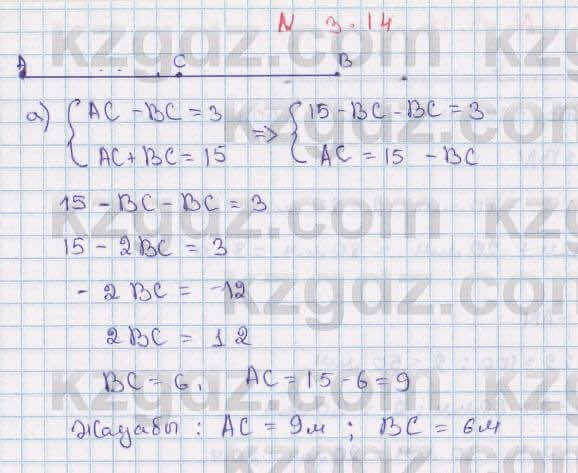 N 3.14
A C B
а) { AC - BC = 3 => { 15 - BC - BC = 3
AC + BC = 15 AC = 15 - BC
15 - BC - BC = 3
15 - 2BC = 3
- 2BC = -12
2BC = 12
BC = 6, AC = 15 - 6 = 9
Жауабы : AC = 9м ; BC = 6м
kzgdz.com